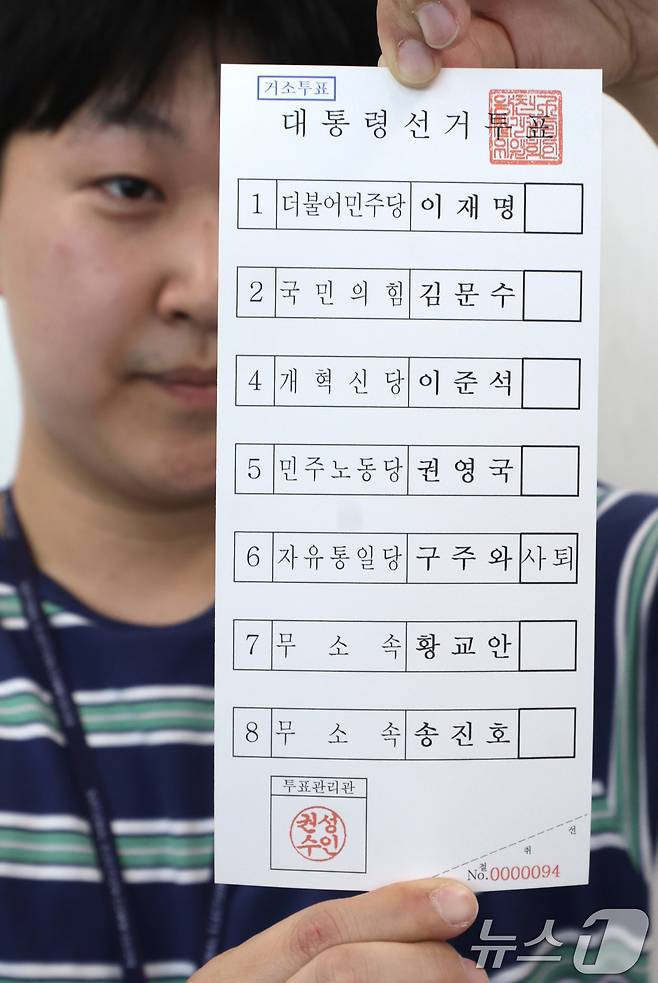 거소투표
대통령선거투표
1 더불어민주당 이재명
2 국민의힘 김문수
4 개혁신당 이준석
5 민주노동당 권영국
6 자유통일당 구주와 사퇴
7 무소속 황교안
8 무소속 송진호
투표관리관
권성
수인
절취선
No.0000094
뉴스1